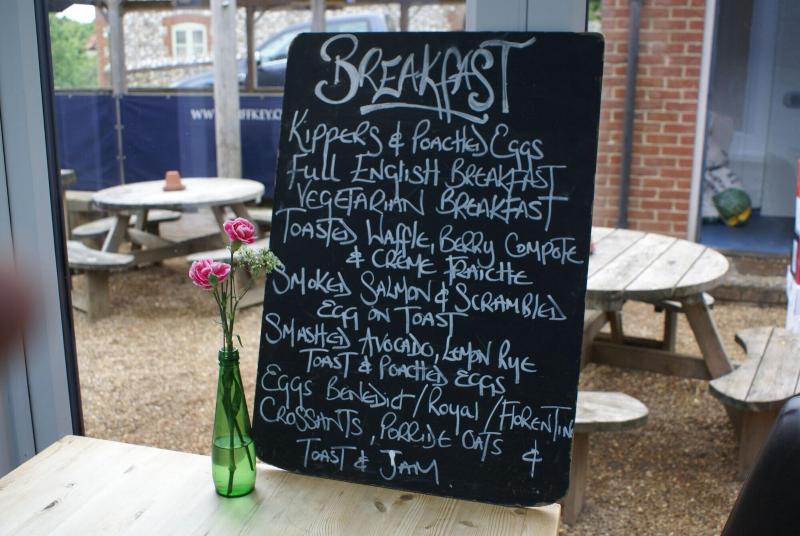 BREAKFAST
KIPPERS & POACHED EGGS
FULL ENGLISH BREAKFAST
VEGETARIAN BREAKFAST
TOASTED WAFFLE, BERRY COMPOTE
& CRÈME FRAICHE
SMOKED SALMON & SCRAMBLED
EGG ON TOAST
SMASHED AVOCADO, LEMON RYE
TOAST & POACHED EGGS
EGGS BENEDICT/ROYAL/FLORENTINE
CROSSANTS, PORRIDE OATS &
TOAST & JAM